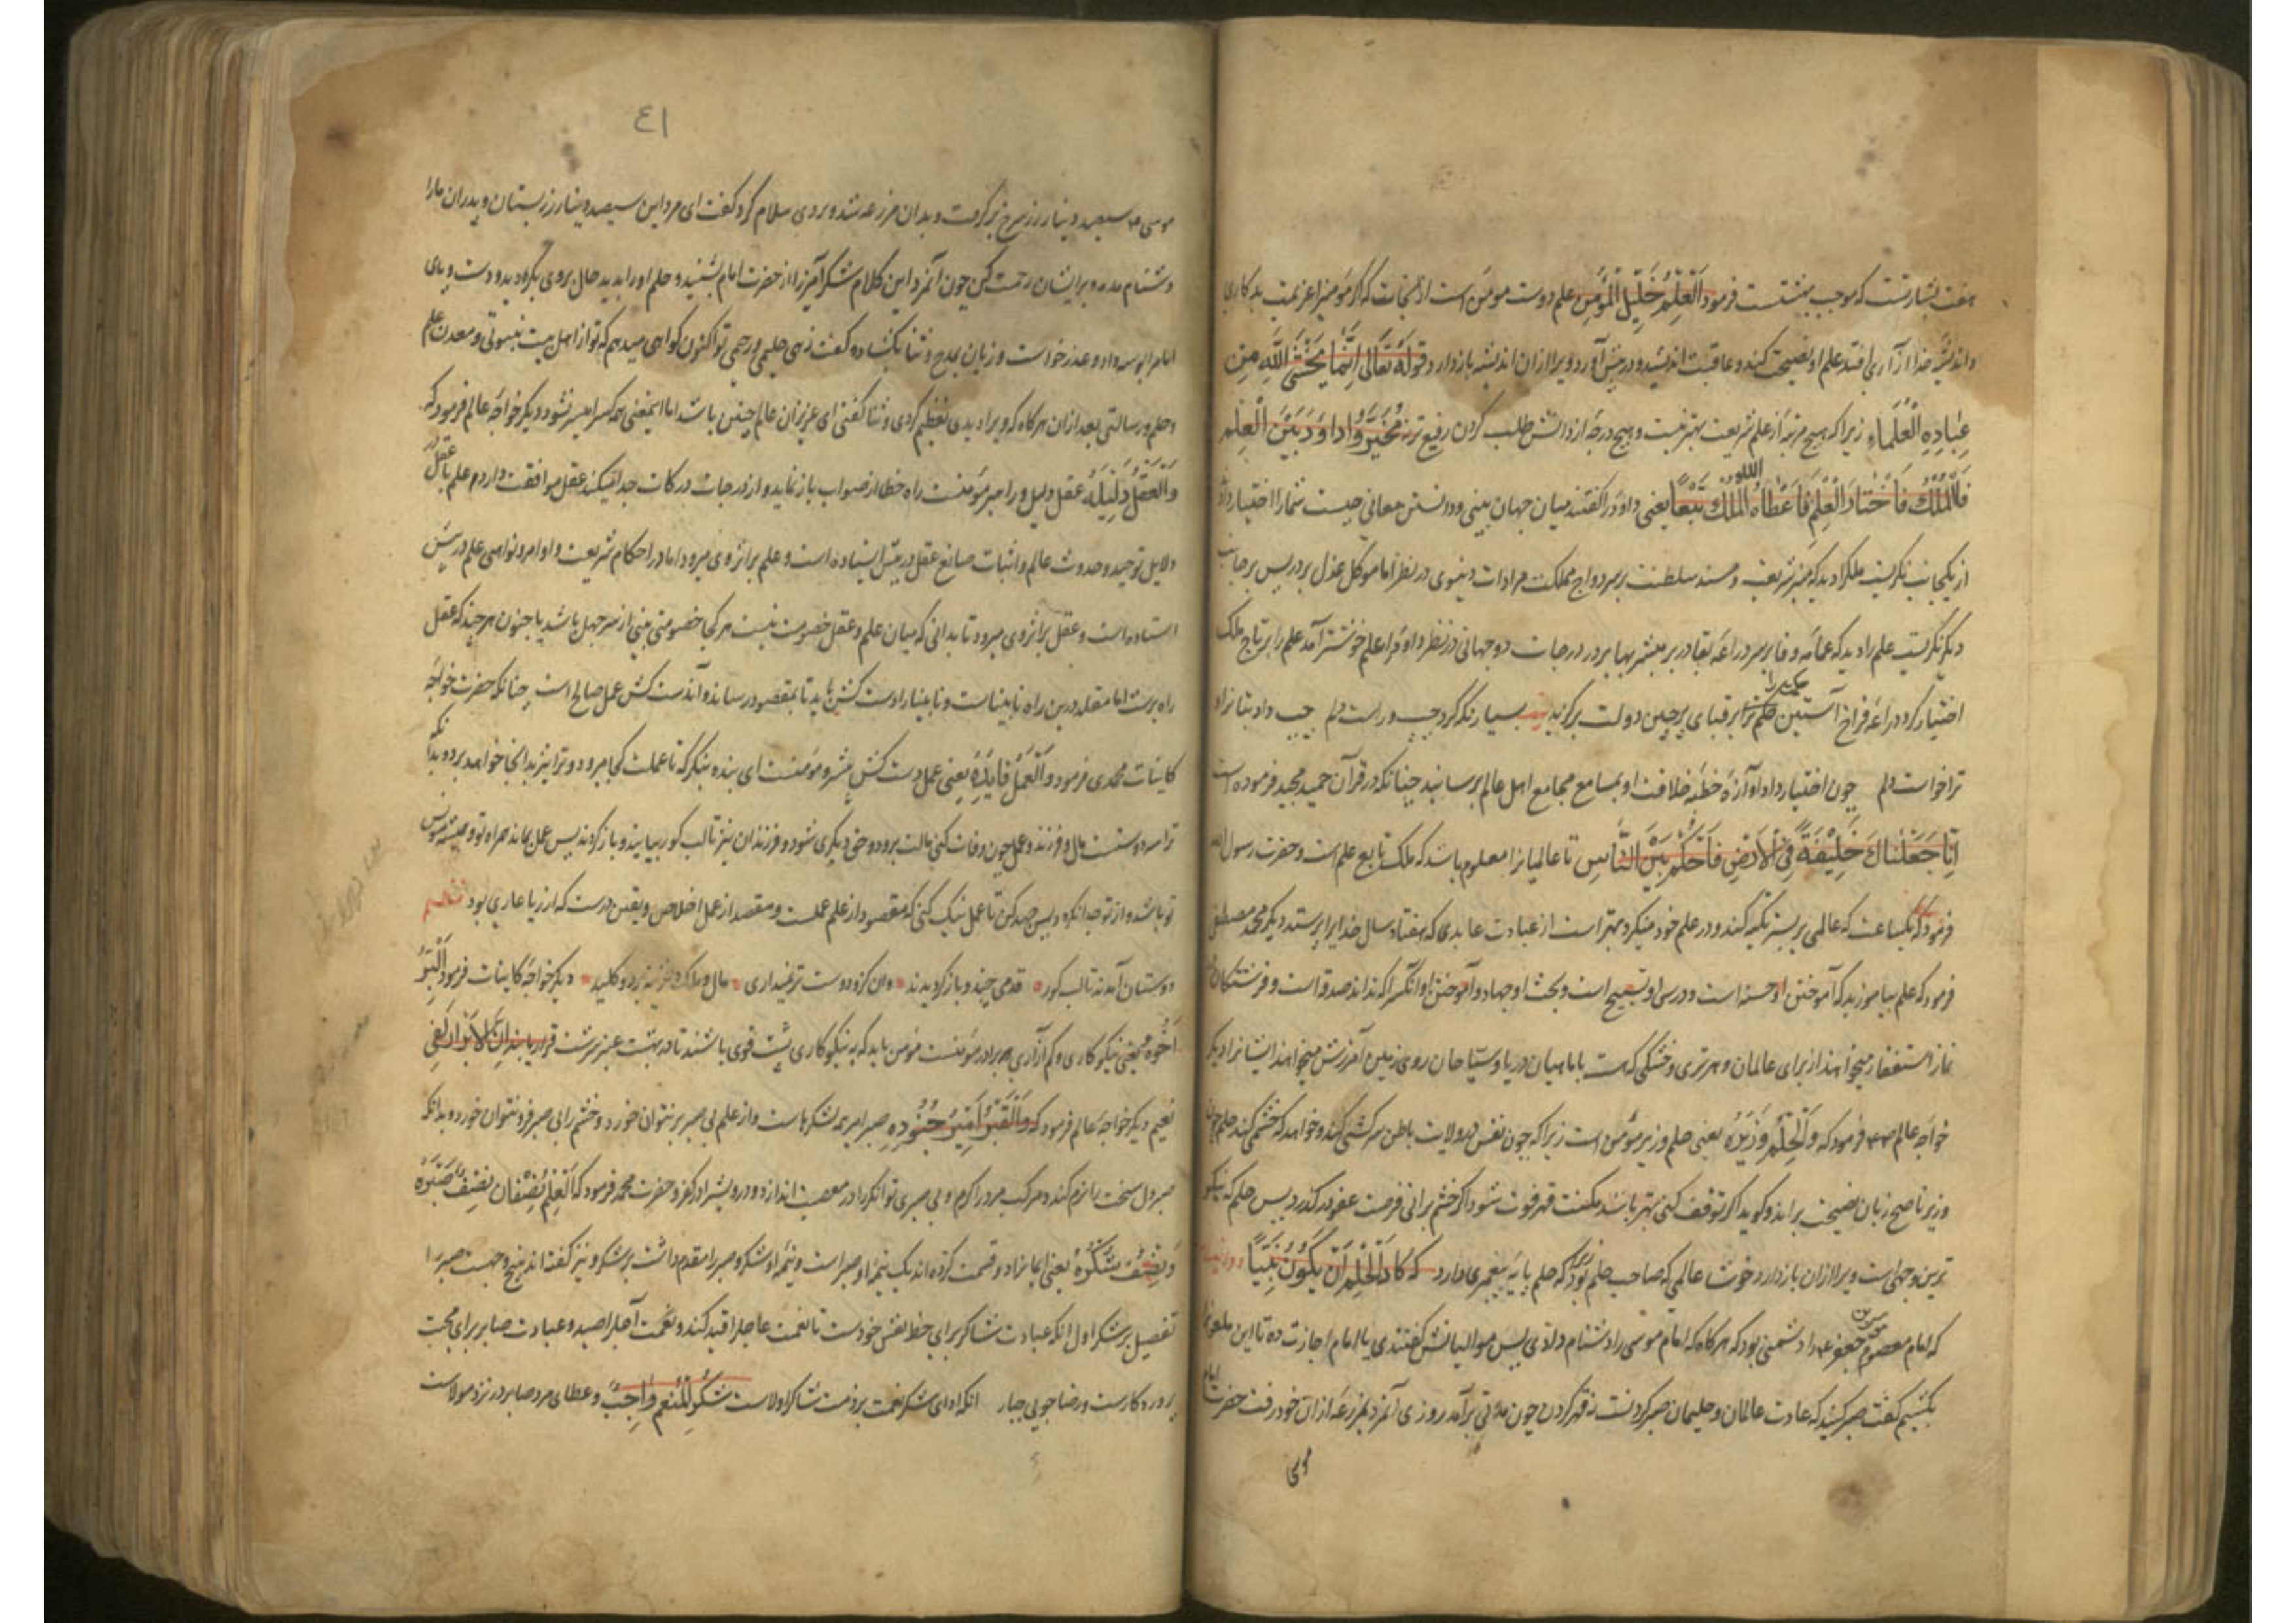 هفت بشارتست که موجب بهشتست فرمود اَلْعِلْمُ خَلِیْلُ الْمُؤمِنِ علم دوست مومن است از آنجات که اگر مومنرا عزیمت بد کاری
و اندیشهٔ خدا آزاری افتد علم او نصیحت کند و عاقبت اندیشد و در پیش آورد و ویرا از ان اندیشه باز دارد قوله تعالی اِنَّمَا یَخْشَی اللّٰهَ مِنْ
عِبَادِهِ الْعُلَمَاءِ زیرا که هیچ مرتبه از علم شریعت بهتر نیست و هیچ درجه از دانش طلب کردن رفیع تر نه خُیِّرَ دَاوَد بَیْنَ الْعِلْمِ
وَالْمُلْكِ فَاخْتَارَ الْعِلْمَ فَاَعْطَاهُ اللّٰه الْمُلْكَ تَبَعًا یعنی داود را گفتند میان جهان بینی و دانستن معانی چیست شمارا اختیار داد
از یکجانب نگریست ملک را دید که منبر شریف و مسند سلطنت بر سر و واج مملکت مرادات دنیوی در نظر اما موکل عذل بر در پس بر جانب
دیگر نگریست علم را دید که عمامه وفا بر سر دراعه بقا در بر مبشر بها بر در درجات دو جهانی در نظر داود را علم خوشتر آمد علم را بر تاج ملک
اختیار کرد دراعه فراخ آستین حلم را بر قبای پرچین دولت برگزید بسیار نگه کرد چپ و راست دلم
ترا خواست دلم چون اختیار داد آوازهٔ خطبه خلافت او بمسامع مجامع اهل عالم برسانید چنانکه در قرآن حمید مجید فرموده است
اِنَّا جَعَلْنَاكَ خَلِیْفَةً فِی الْاَرْضِ فَاحْكُمْ بَیْنَ النَّاسِ تا عالمیانرا معلوم باشد که ملک تابع علم است و حضرت رسول الله
فرمود که یکساعت که عالمی بر بستر تکیه کند و در علم خود مینگرد بهتر است از عبادت عابدی که هفتاد سال خدایرا پرستد دیگر محمد مصطفی
فرمود که علم بیاموزید که آموختن او حسنه است و درس او تسبیح است و بحث او جهاد و آموختن او آنکسرا که نداند صدقه است و فرشتگان
نماز استغفار میخواهند از برای عالمان و هر تری و خشکی که هست با ماهیان دریا و سیاحان روی زمین آمرزش میخواهند ایشانرا دیگر
خواجه عالم فرمود که وَالْحِلْمُ وَزِیْرُهُ یعنی حلم وزیر مؤمن است زیرا که چون نفس در ولایت باطن سرکشی کند و خواهد که خشمی کند حلم چون
وزیر ناصح زبان نصیحت براند و گوید اگر توقف کنی بهتر باشد مکنت قهر فوت شود اگر خشم برانی فرصت عفو در گذرد پس حلم که نیکو
ترین وجهی است ویرا از ان باز دارد خوشا عالمی که صاحب حلم بود که حلم پایه پیغمبری دارد که كَادَ الْحَلِیْمُ اَنْ یَكُوْنَ نَبِیًّا
که امام معصوم موسی جعفر را دشمنی بود که هرگاه که امام موسی را دشنام دادی پس موالیانش گفتندی یا امام اجازت ده تا این ملعونرا
بکشیم گفت صبر کنید که عادت عالمان و حلیمان صبر کردنست نه قهر کردن چون مدتی برآمد روزی آنمرد بمزرعه از ان خود رفت حضرت امام
موسی
٤١
موسی سیصد دینار زر سرخ برگرفت و بدان مزرعه شد و بر وی سلام کرد گفت ای مرد این سیصد دینار زر بستان و پدران مارا
دشنام مده و بر ایشان رحمت کن چون آنمرد این کلام شکرآمیز را از حضرت امام بشنید و حلم او را بدید حال بر وی بگردید و دست و پای
امام بوسه داد و عذر خواست و زبان بمدح و ثنا بگشاده گفت زهی حلیمی و رحیمی تو اکنون گواهی میدهم که تو از اهل بیت نبوتی و معدن علم
و حلم و رسالتی بعد از ان هر گاه که ویرا دیدی تعظیم کردی و ثنا گفتی ای عزیزان عالم چنین باشد اما اینمعنی همه کسرا میسر نشود دیگر خواجه عالم فرمود که
وَالْعَقْلُ دَلِیْلُهُ عقل دلیل و راهبر مؤمنست راه خطا از صواب باز نماید و از درجات درکات جدا میکند عقل موافقت دارد م علم با عقل در
دلایل توحید و حدوث عالم و اثبات صانع عقل در پیش ایستاده است و علم بر اثر وی میرود اما در احکام شریعت و اوامر و نواهی علم در پیش
ایستاده است و عقل بر اثر وی میرود تا بدانی که میان علم و عقل خصومت نیست هر کجا خصومتی بینی از سر جهل باشد یا جنون هر چند که عقل
راه برست اما مقلد درین راه نابیناست و نابینا را دست کش باید تا بمقصود رساند و آندست کش عمل صالح است چنانکه حضرت خواجه
کاینات محمدی فرمود وَالْعَمَلُ قَایِدُهُ یعنی عمل دست کش مؤمنست ای بنده بنگر که تا عملت کجا میرود و ترا نیز بدانجا خواهد برد و بدانکه
ترا سه دوستست مال و فرزند و عمل چون وفات کنی مالت برود و حق دیگری شود و فرزندان نیز تا لب گور بیایند و باز گردند پس عمل بماند همراه تو و همیشه مونس
تو باشد و از تو جدا نگردد پس جهد کن تا عمل نیک کنی که مقصود از علم عملست و مقصد از عمل اخلاص و یقین درست که از ریا عاری بود نظم
دوستان آمدند تا لب گور قدمی چند و باز گردیدند وان کزو دوست تر نمیداری مال و ملک دیگر خواجه کاینات فرمود اَلْبِرُّ
اَخُوْهُ یعنی نیکوکاری و کم آزاری برادر مؤمنست مؤمن باید که به نیکوکاری پشت قوی باشند تا در بهشت عنبر سرشت قرار یابند اِنَّ الْاَبْرَارَ لَفِی
نعیم دیگر خواجه عالم فرمود که وَالصَّبْرُ اَمِیْرُ جُنُوْدِهِ صبر امیر همه لشکرهاست و از علم بی صبر بر نتوان خورد و خشم را بی صبر فرو نتوان خورد و بدانکه
صبر دل سخت را نرم کند و مرکب مرد را کرم و بی صبری توانگر را در معصیت اندازد و درویش را در کفر و حضرت محمد فرمود که نِصْفَان نِصْفٌ صَبْرٌ
وَ نِصْفٌ شُكْرٌ یعنی ایمانرا دو قسمت کرده اند یک نیمهٔ او صبر است و نیمهٔ او شکر و صبر را مقدم داشت بر شکر و نیز گفته اند بپنج وجهت صبر را
تفضیل بر شکر اول آنکه عبادت شاکر برای حظ نفس خودست تا نعمت عاجل را قید کند و نعمت آجل را صید و عبادت صابر برای محبت
پروردگارست و رضا جویی جبار آنکه ادای شکر نعمت بر ذمت شاکر اولاست شُكْرُ الْمُنْعِمِ وَاجِبٌ و عطای مرد صابر در نزد مولاست